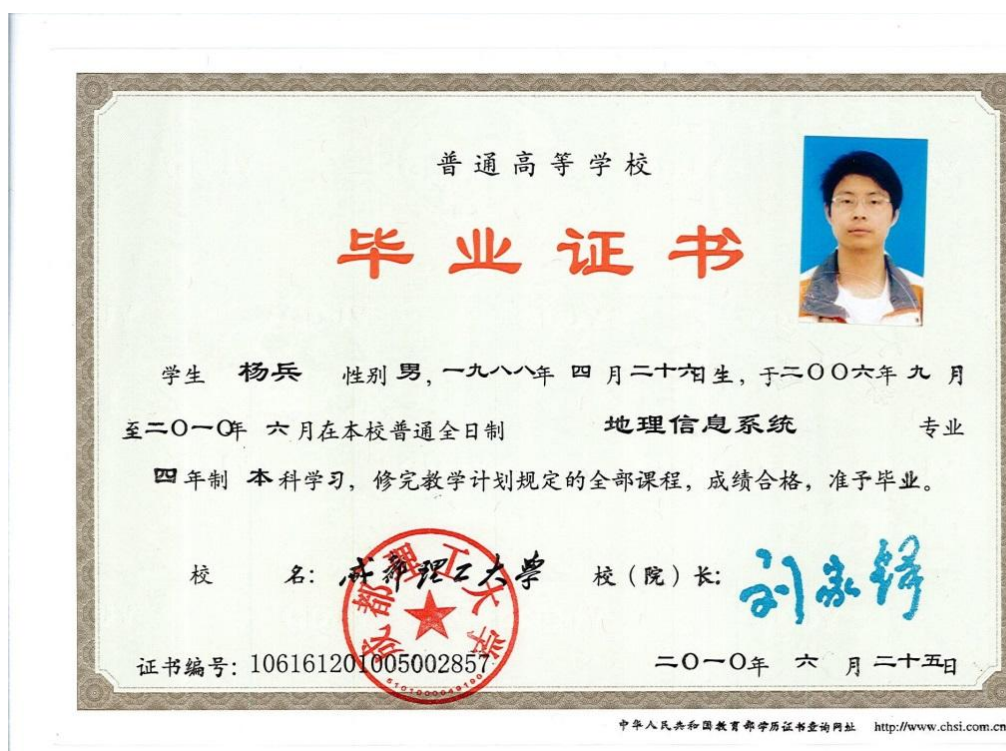 普通高等学校
毕业证书
学生 杨兵 性别 男，一九八八年 四 月二十六日生，于二〇〇六年 九 月
至二〇一〇年 六 月在本校普通全日制 地理信息系统 专业
四 年制 本 科学习，修完教学计划规定的全部课程，成绩合格，准予毕业。
校 名：成都理工大学 校（院）长：刘家铎
成都理工大学
5101000049190
证书编号：106161201005002857 二〇一〇年 六 月 二十五日
中华人民共和国教育部学历证书查询网址 http://www.chsi.com.cn